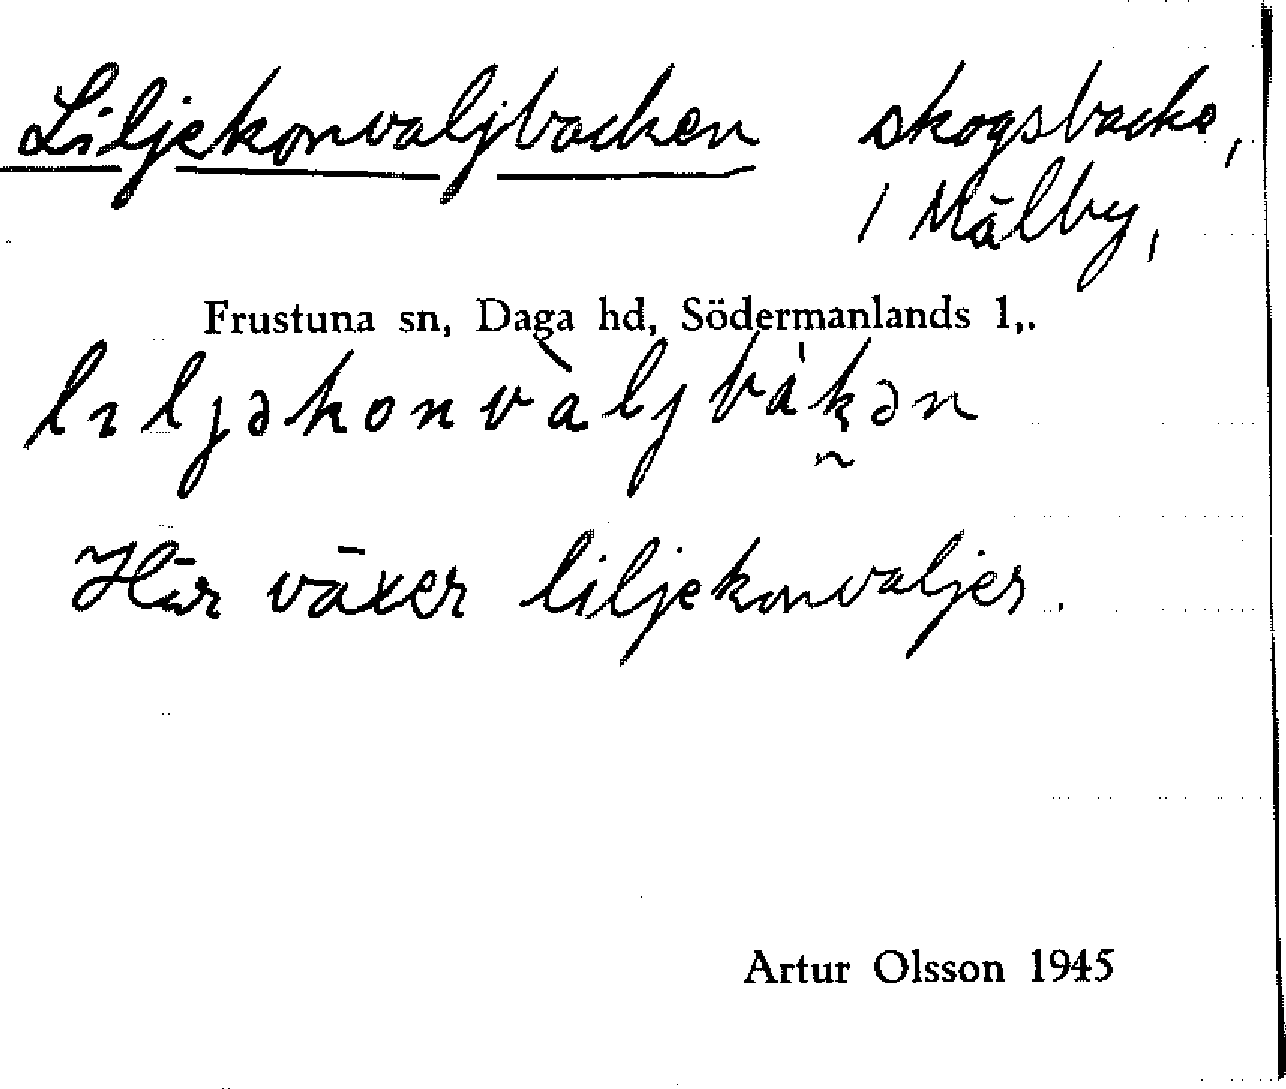 Liljekonvaljbacken skogsbacke,
/ Mälby,
Frustuna sn, Daga hd, Södermanlands l,.
lıljəkonvàljbákən
Här växer liljekonvaljer.
Artur Olsson 1945